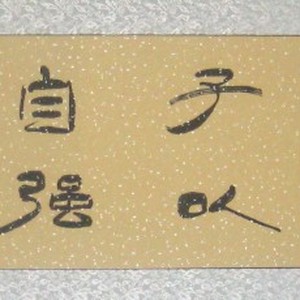 子以
自强